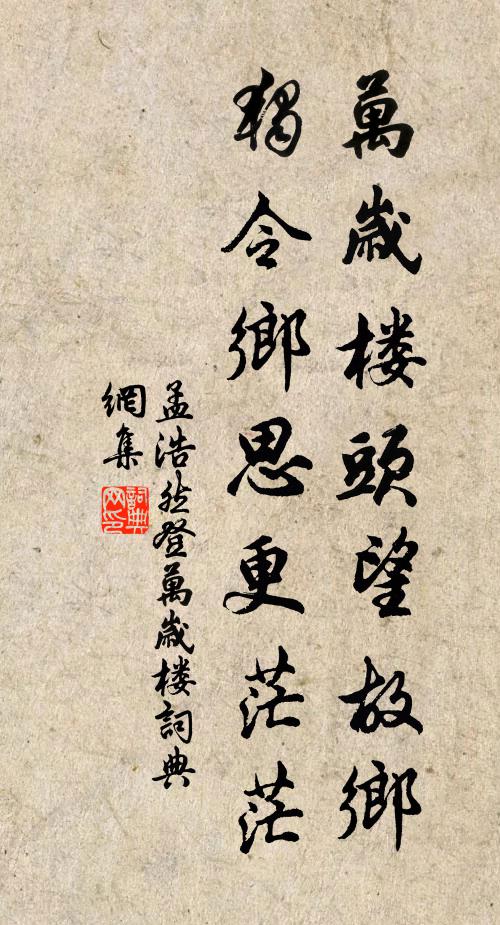 萬歲楼頭望故鄉
獨令鄉思更茫茫
孟浩然登萬歲楼詞典
網集
詞典
网印